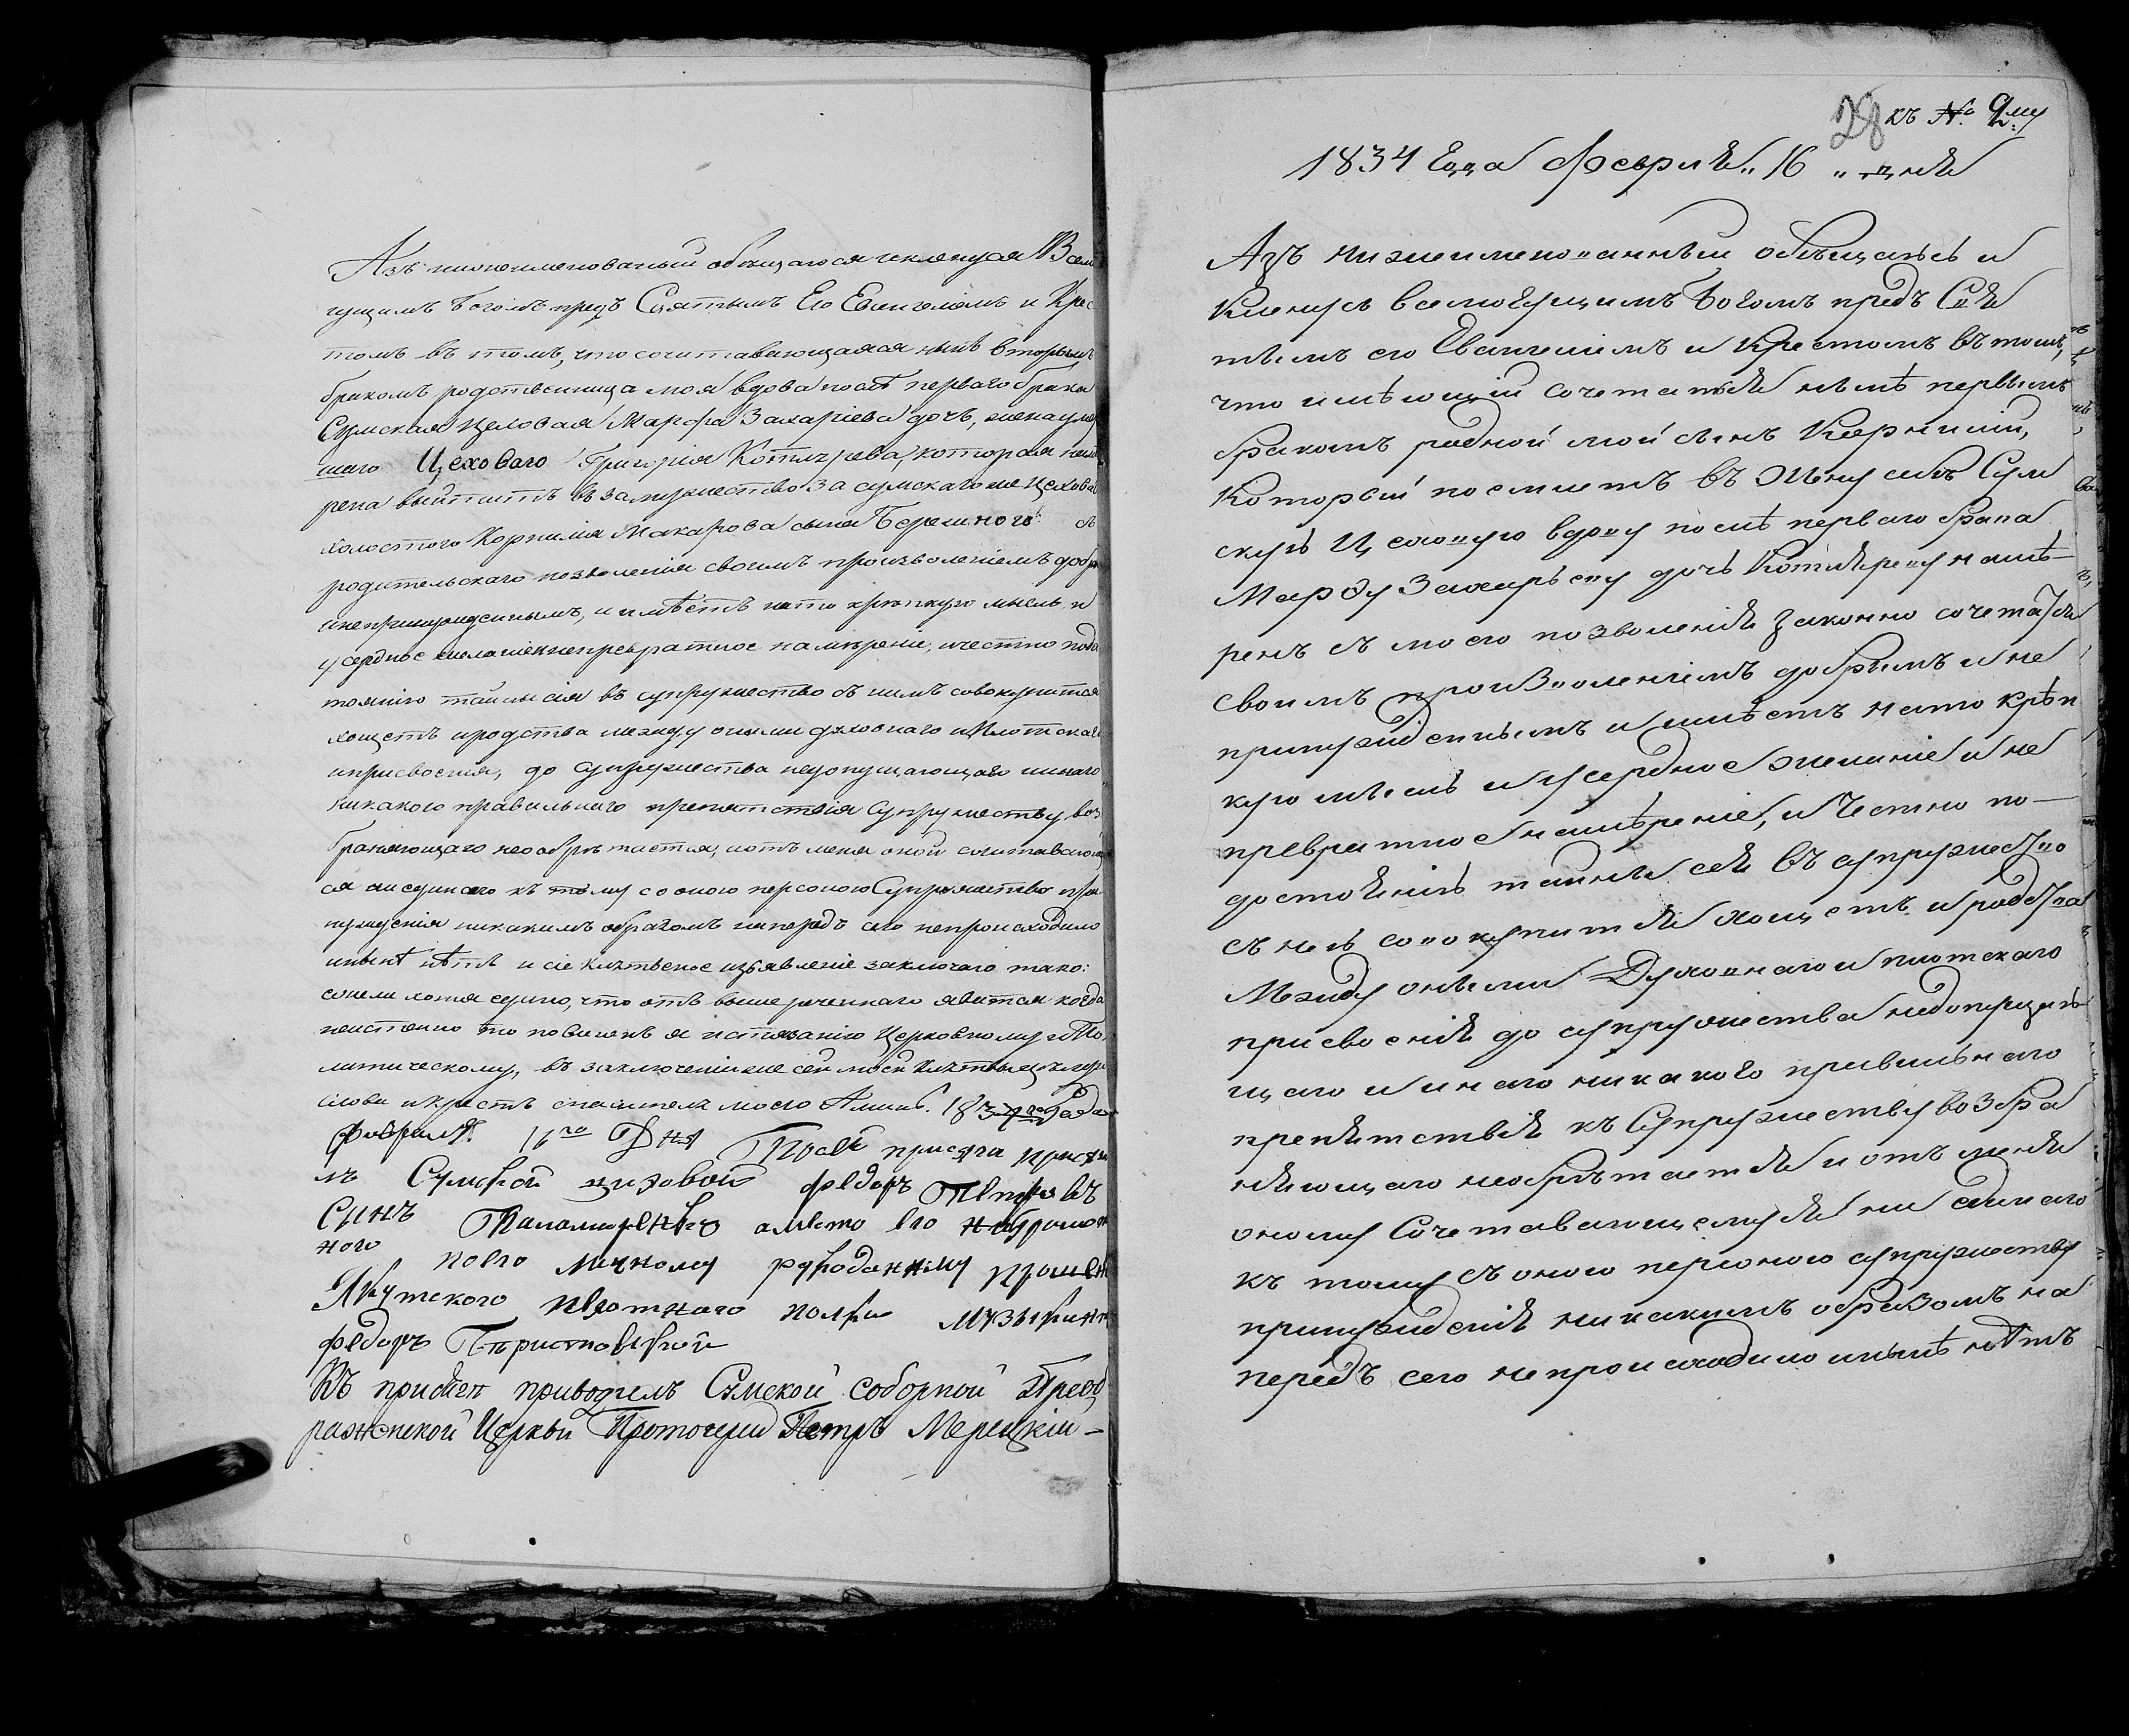 Азъ нижеименованый обѣщаюся и кленуся Всем
гущимъ Богомъ предъ Святымъ Его Евангелiемъ и Крес
томъ въ томъ, что сочитавающаяся нынѣ вторымъ
бракомъ родственница моя вдова послѣ перваго брака
Сумская цеховая Марфа Захарiева дочь, жена умер
шаго Цеховаго Григорiя Котлярева, которая намѣ
рена выйтить въ замужество за сумскаго же цехова
холостого Корнилiя Макарова сына Бережного съ
родительскаго позволенiя своимъ произволенiемъ добры
и непринужденнымъ, и имѣетъ на то крѣпкую мысль и
усердное желанiе и непревратное намѣренiе, и честно подо
тоянiю тайны сiя въ супружество съ нимъ совокупится
хощетъ и родства между оными духовнаго и Плотскаго
и присвоенiя, до Супружества недопущающаго и инаго
никакого правильнаго препятствiя Супружеству воз
браняющаго необрѣтается, и отъ меня оной сочитавающей
ся ни единаго къ тому со оною персоною Супружество при
нужденiя никакимъ образомъ напередъ сего непроисходило
и нынѣ нѣтъ и сiе клятвеное изъявленiе заключаю тако:
сонели хотя едино, что отъ выше реченнаго явится когда
неистенно то повиненъ я истязанiю Церковному и По
литическому, въ заключенiи же сей моей клятвы цѣлую
слова и крестъ спасителя моего Аминь. 1834го Года
Февраля 16го Дня После присяги присяга
лъ Сумской цеховой Федоръ Петровъ
Сынъ Паламаренко амѣсто его неграмот
ного по его личному рукоданному прошен
Якутского пехотнаго полка музыкантъ
Федоръ
Къ присягѣ приводилъ Сумской соборной Преоб
раженской Церкви Протоiерей Петръ Мерецкiй –
28 къ № 9му
1834 Года Февраля „ 16 „ дня
Азъ нижеименованный обѣщаюсь и
Кленусь всемогущимъ Богомъ предъ Свя
тымъ его Евангелiемъ и Крестомъ въ томъ,
что имѣющiй сочетатся нынѣ первымъ
бракомъ родной мой сынъ Корнилiй,
Который поемлетъ въ Жену себѣ Сум
скую Цеховую вдову послѣ перваго брака
Марфу Захарьеву дочь Котляреву намѣ–
ренъ съ моего позволенiя законно сочетатся
своимъ произволенiемъ добрымъ и не
принужденнымъ и имѣетъ на то крѣп
кую мысль и усердное желанiе и не
превратное намѣренiе, и Честно по–
достоянiю тайны сея въ супружество
съ нею совокупится хощетъ и родства
Между оными Духовнаго и плотскаго
присвоенiя до супружества недопущаю
щаго и инаго никакого правильнаго
препятствiя къ Супружеству возбра
няющаго необрѣтается и отъ меня
оному Сочетавающемуся ни единаго
къ тому съ оною персоною супружеству
принужденiя никакимъ образомъ на
передъ сего непроисходило и нынѣ нѣтъ